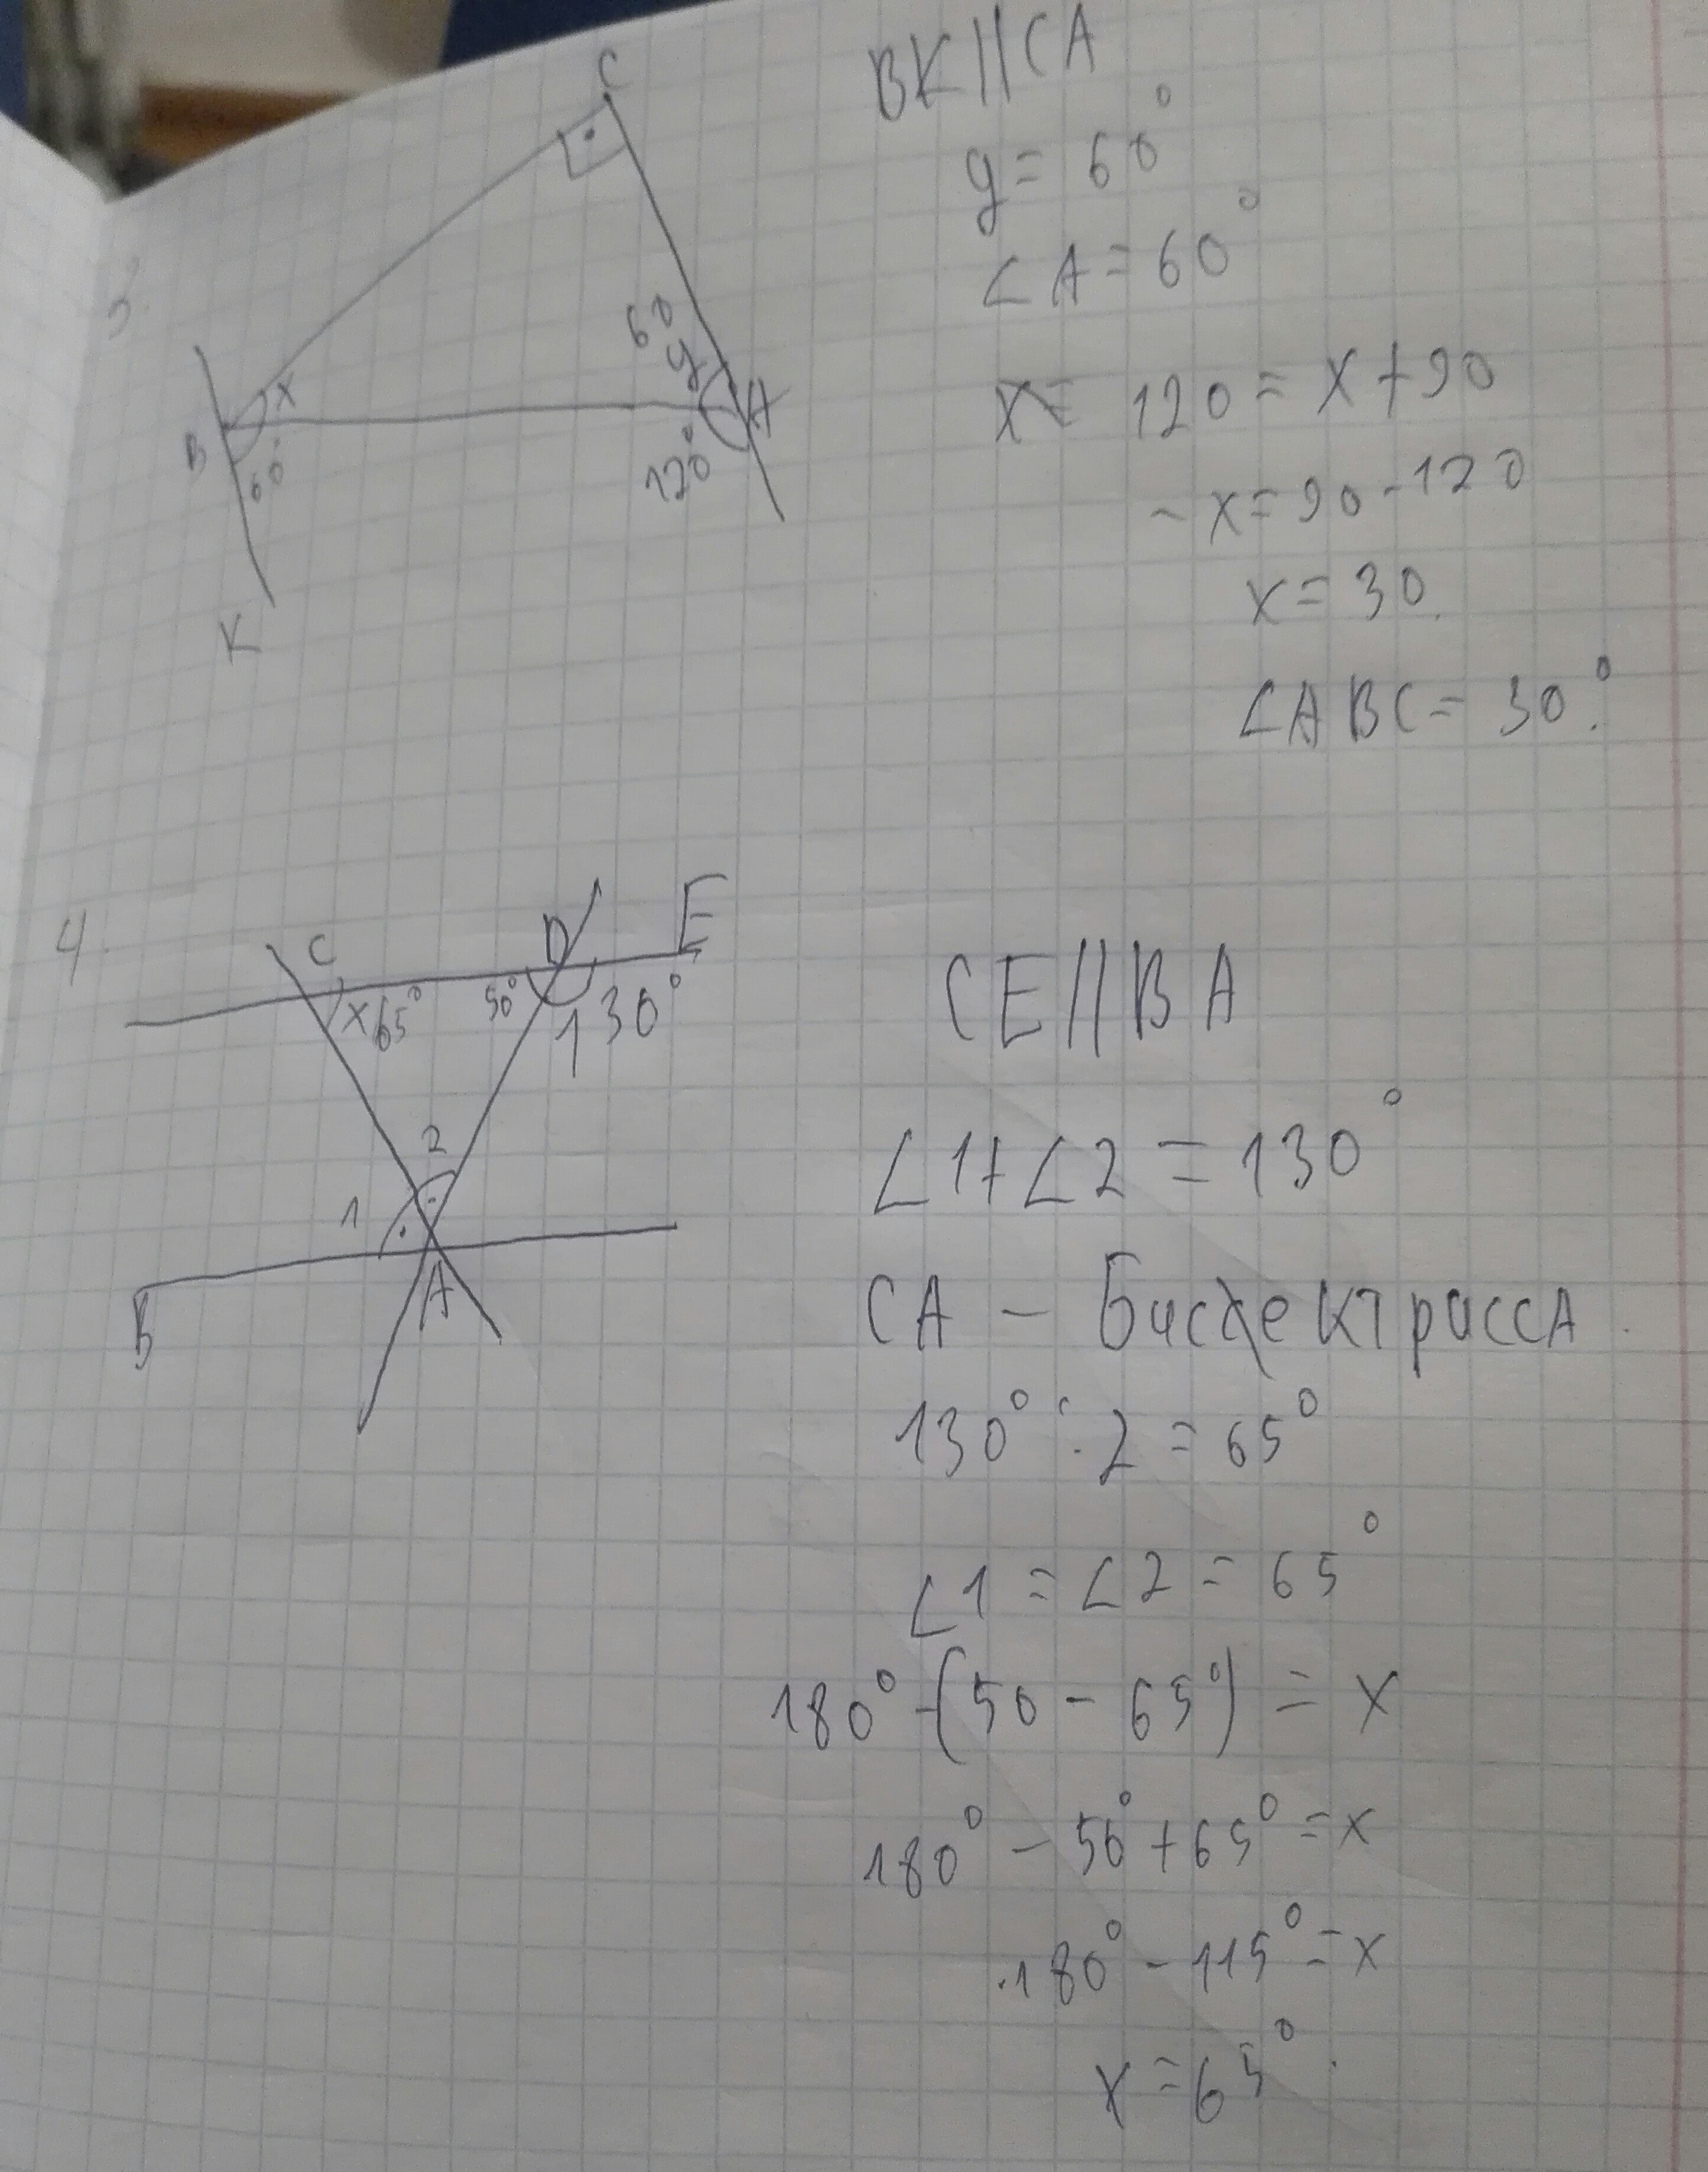 3.
C
x
B
60°
K
60
y
A
120°
BK||CA
y = 60°
∠A = 60°
x = 120 = x + 90
- x = 90 - 120
x = 30.
∠ABC = 30°.
4.
C
D
E
x 65°
50°
130°
2
1
B
A
CE||BA
∠1+∠2 = 130°
CA - Бисектрисса.
130° : 2 = 65°
∠1 = ∠2 = 65°
180° - (50 - 65°) = x
180° - 50° + 65° = x
180° - 115° = x
x = 65°.